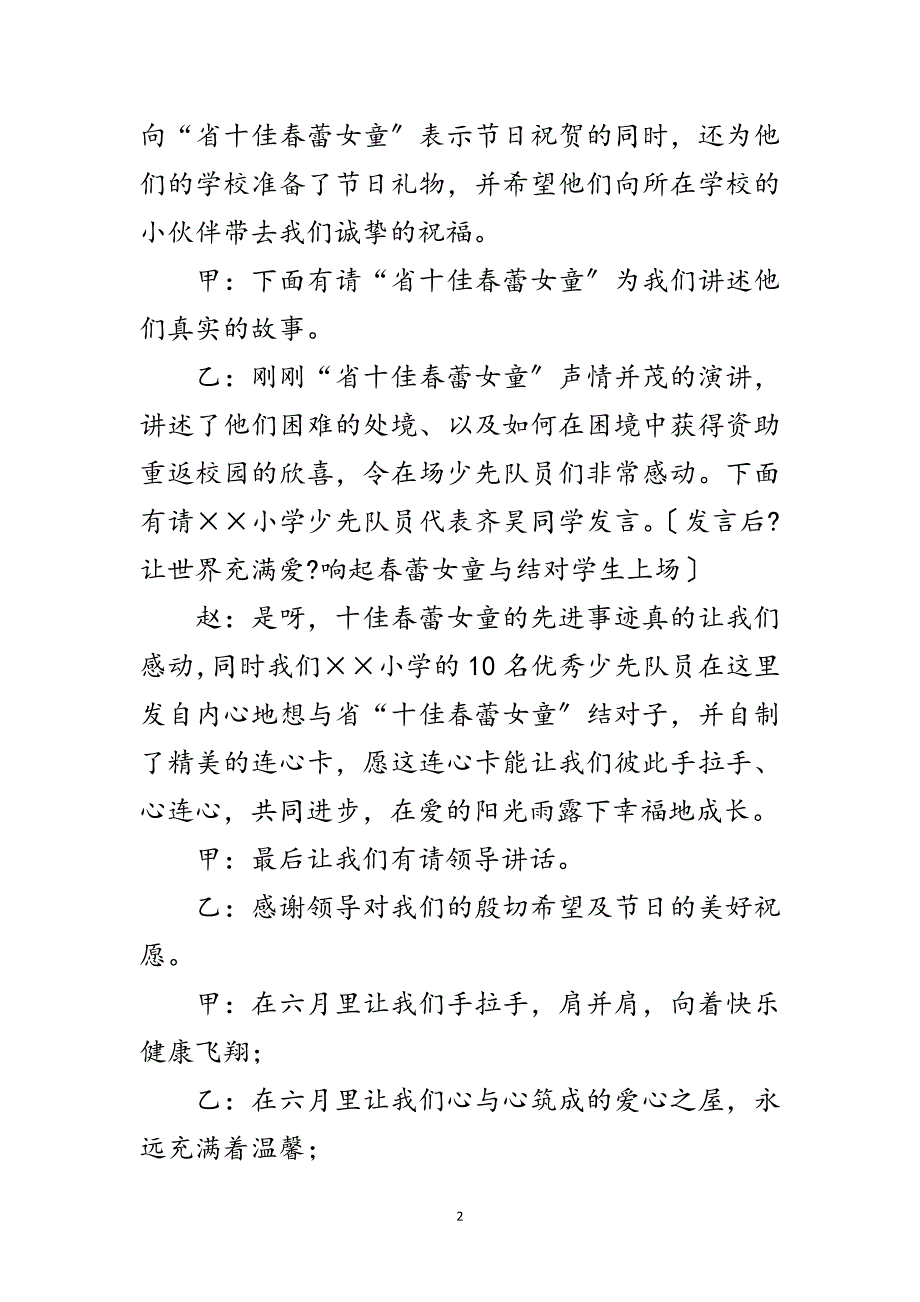 向“省十佳春蕾女童〞表示节日祝贺的同时，还为他
们的学校准备了节日礼物，并希望他们向所在学校的
小伙伴带去我们诚挚的祝福。
甲：下面有请“省十佳春蕾女童〞为我们讲述他
们真实的故事。
乙：刚刚“省十佳春蕾女童〞声情并茂的演讲，
讲述了他们困难的处境、以及如何在困境中获得资助
重返校园的欣喜，令在场少先队员们非常感动。下面
有请××小学少先队员代表齐昊同学发言。〔发言后?
让世界充满爱?响起春蕾女童与结对学生上场〕
赵：是呀，十佳春蕾女童的先进事迹真的让我们
感动,同时我们××小学的10名优秀少先队员在这里
发自内心地想与省“十佳春蕾女童〞结对子，并自制
了精美的连心卡，愿这连心卡能让我们彼此手拉手、
心连心，共同进步，在爱的阳光雨露下幸福地成长。
甲：最后让我们有请领导讲话。
乙：感谢领导对我们的殷切希望及节日的美好祝
愿。
甲：在六月里让我们手拉手，肩并肩，向着快乐
健康飞翔；
乙：在六月里让我们心与心筑成的爱心之屋，永
远充满着温馨；
2